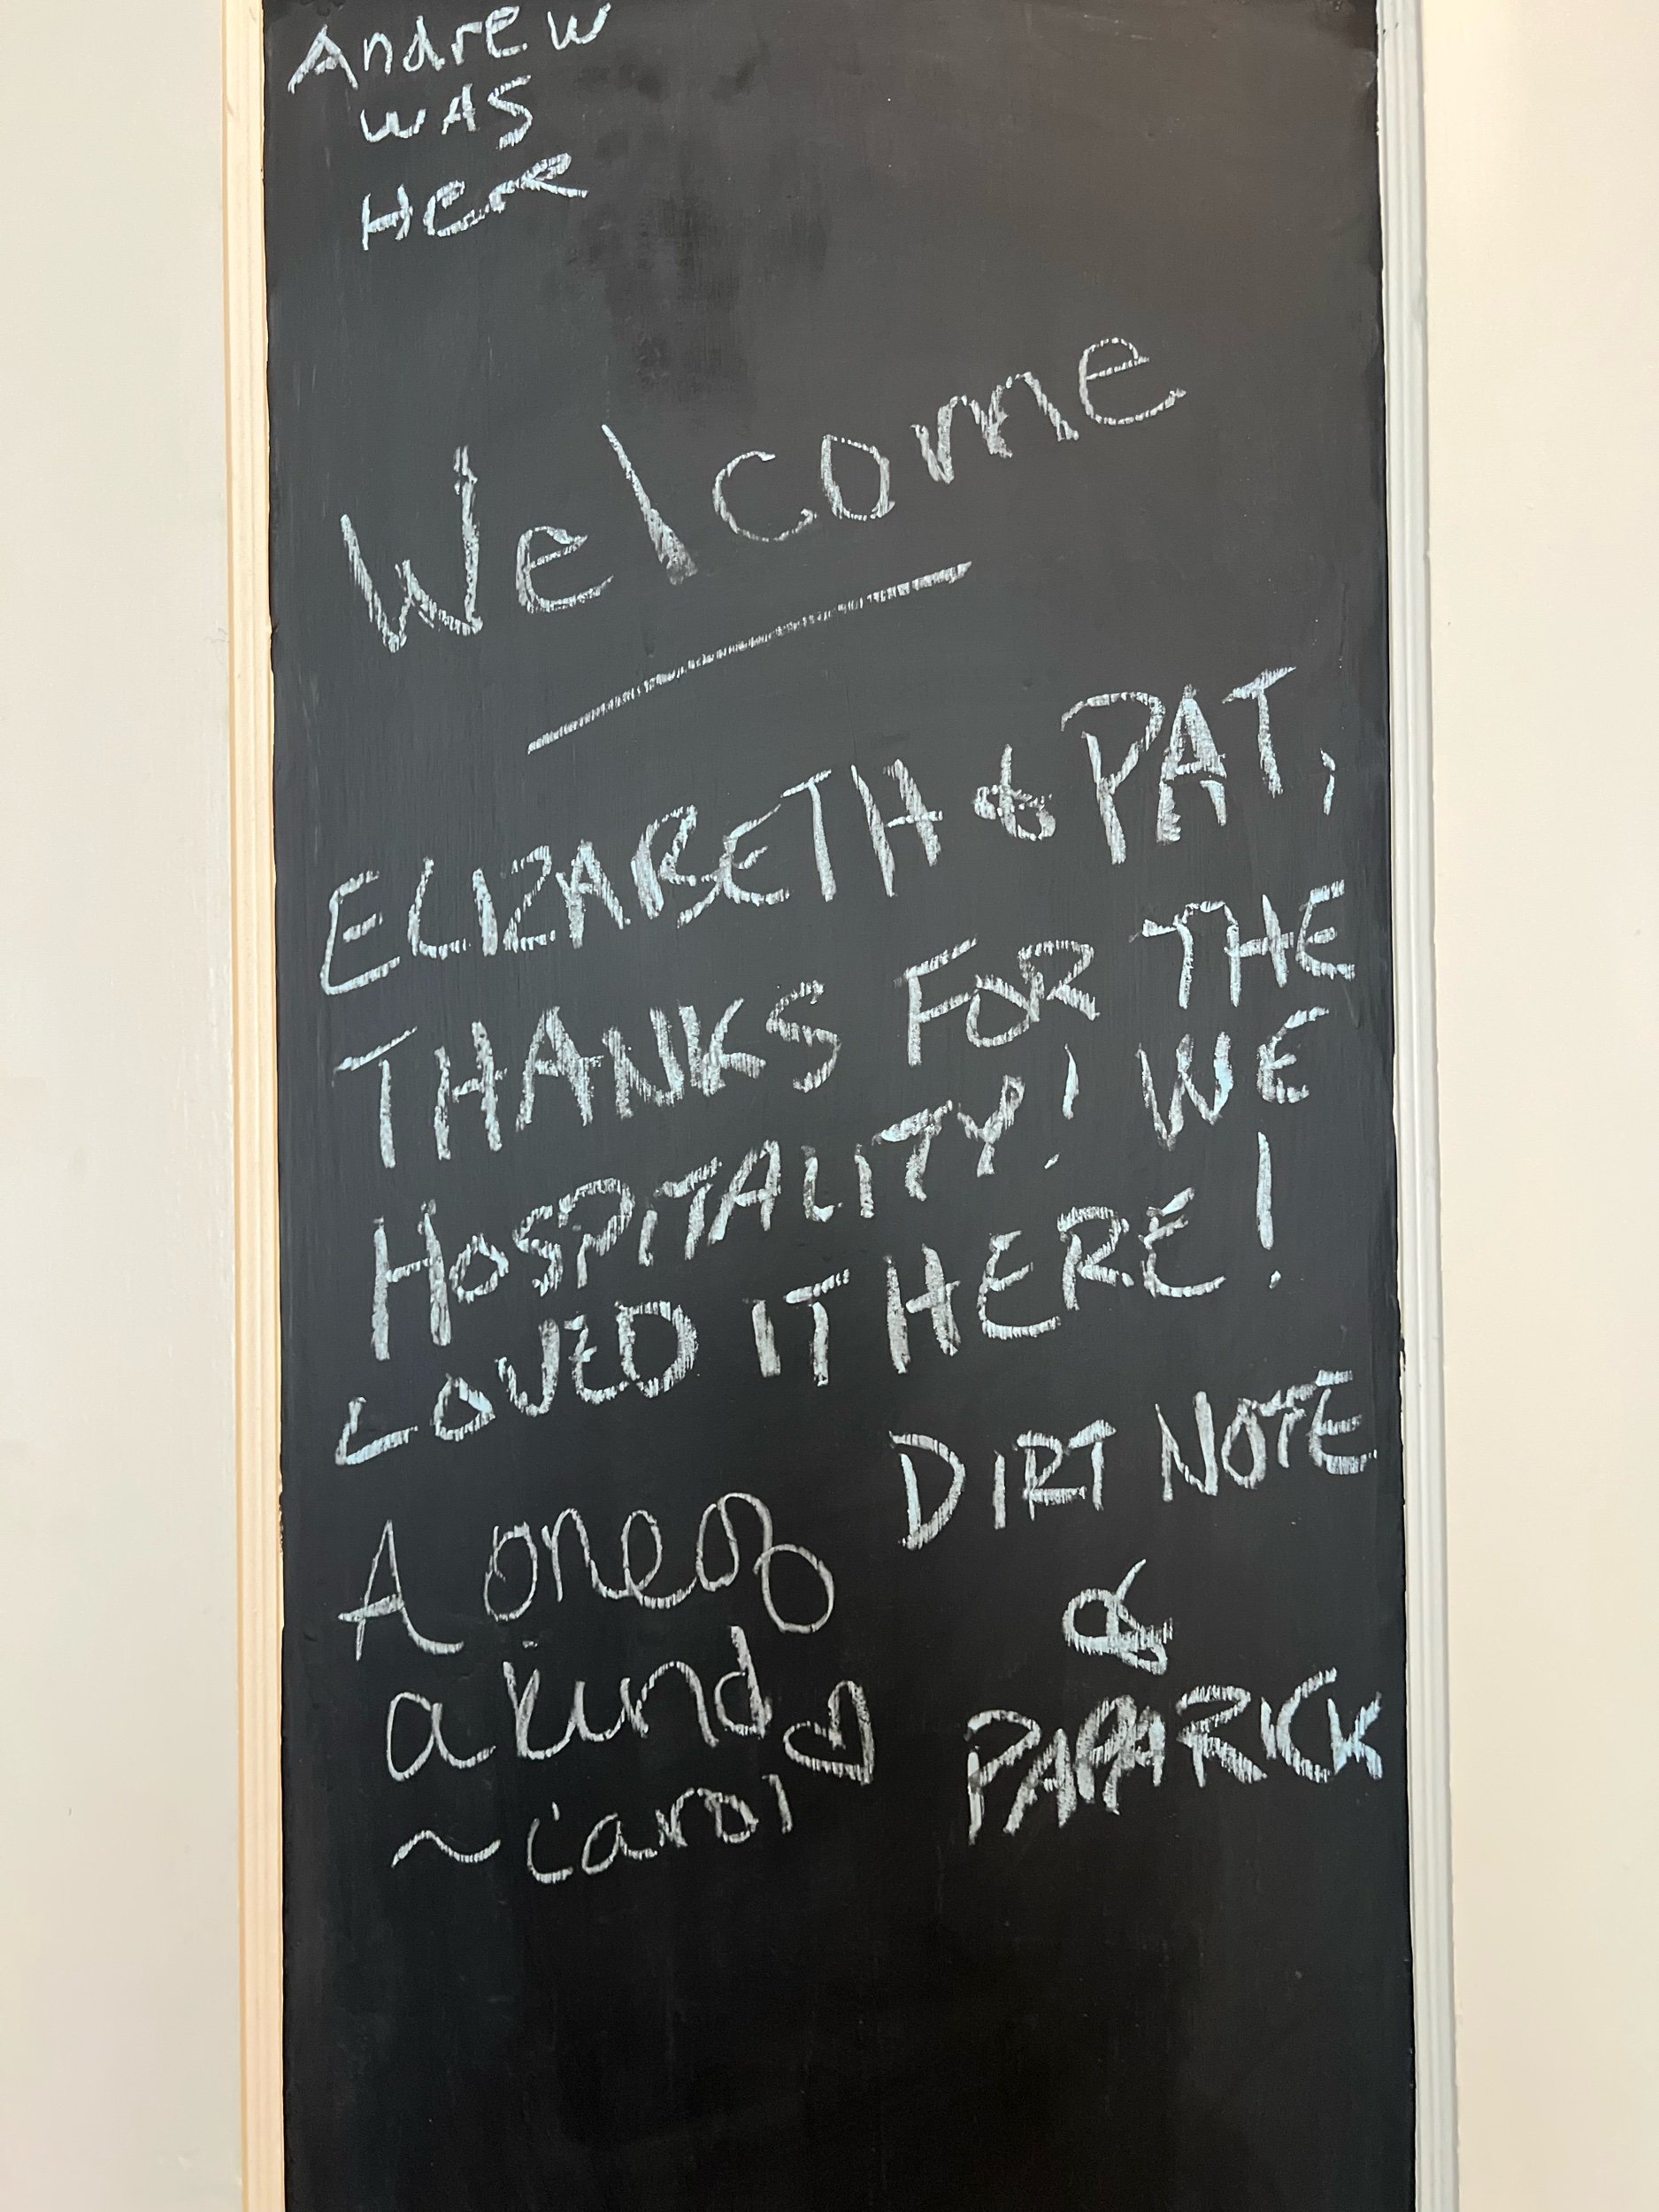 Andrew
WAS
HER
Welcome
ELIZABETH & PAT,
THANKS FOR THE
HOSPITALITY! WE
LOVED IT HERE!
DIRT NOTE
&
PAPARICK
A one of
a kind
~Carol